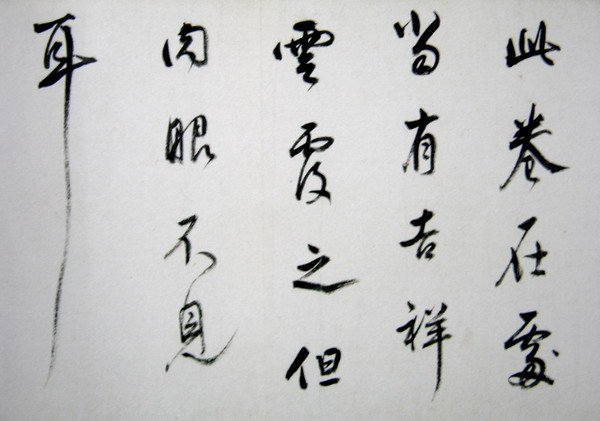 此卷在處
当有吉祥
雲霞之但
肉眼不見
耳